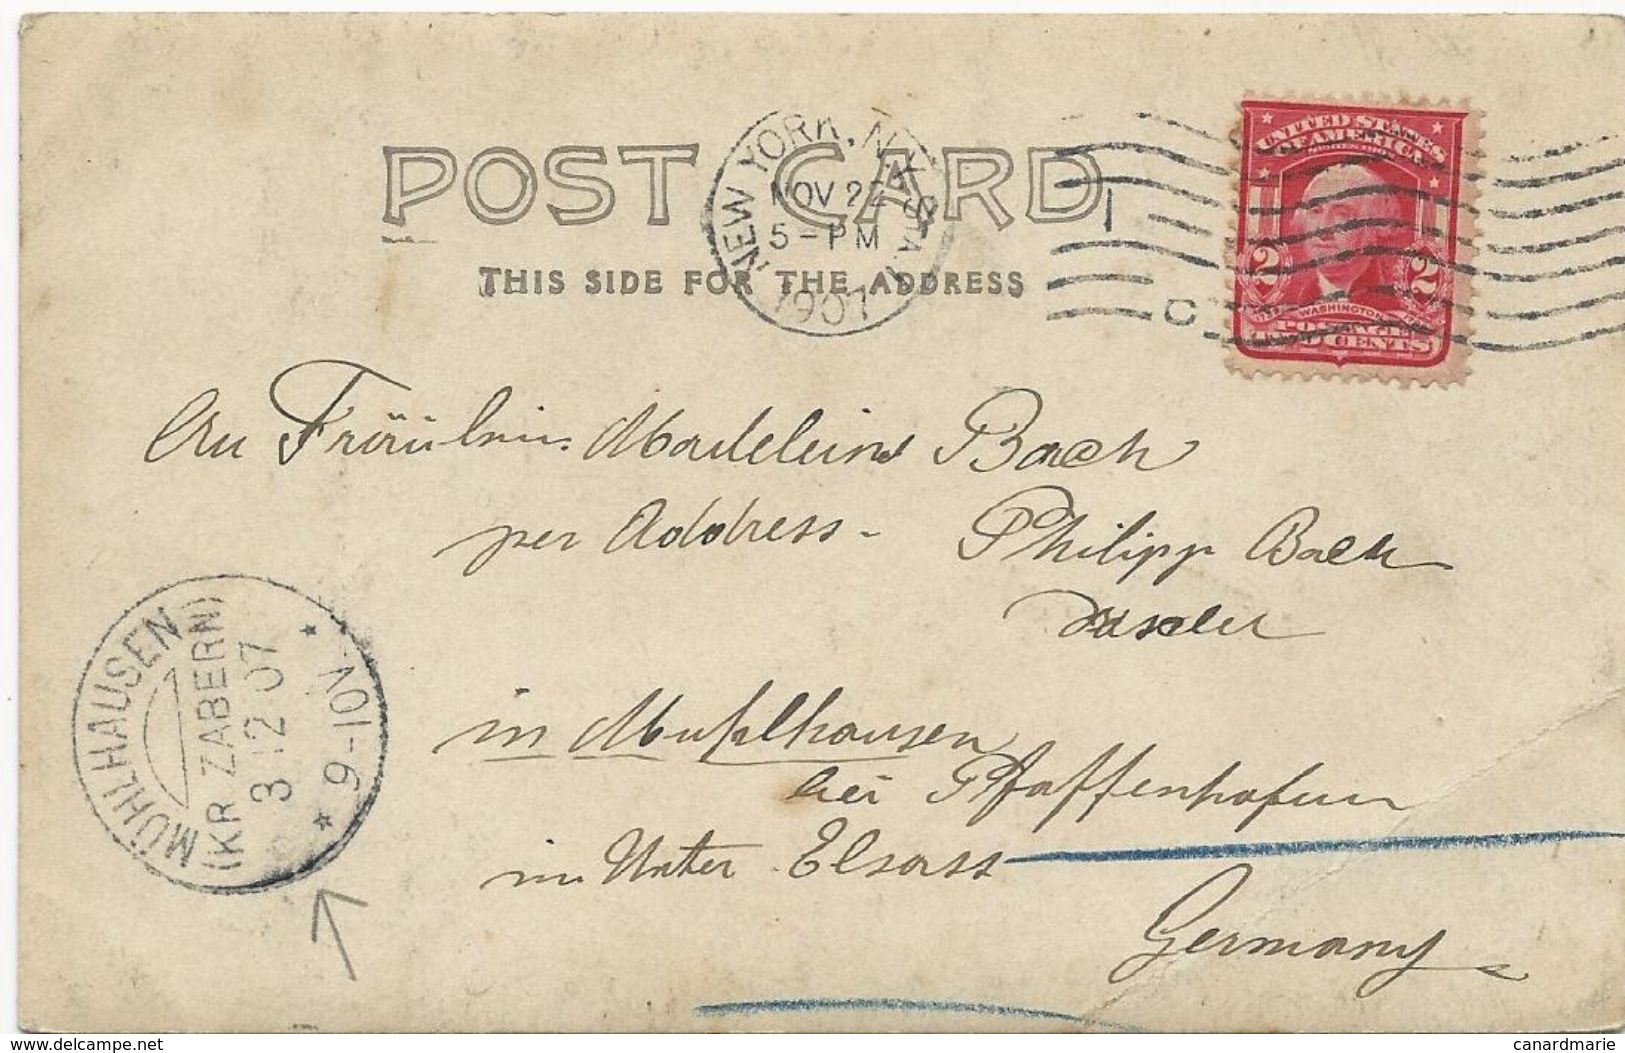 POST CARD
THIS SIDE FOR THE ADDRESS
NEW YORK, N.Y. STA.
NOV 22
5-PM
1907
C
UNITED STATES
OF AMERICA
2 2
WASHINGTON
POSTAGE
TWO CENTS
An Fräulein Madeleine Bach
per Address - Philipp Bach
in Muhlhausen
bei Pfaffenhofen
im Unter Elsass
Germany
MÜHLHAUSEN
(KR ZABERN)
3 12 07
* 9-10V *
delcampe.net
canardmarie